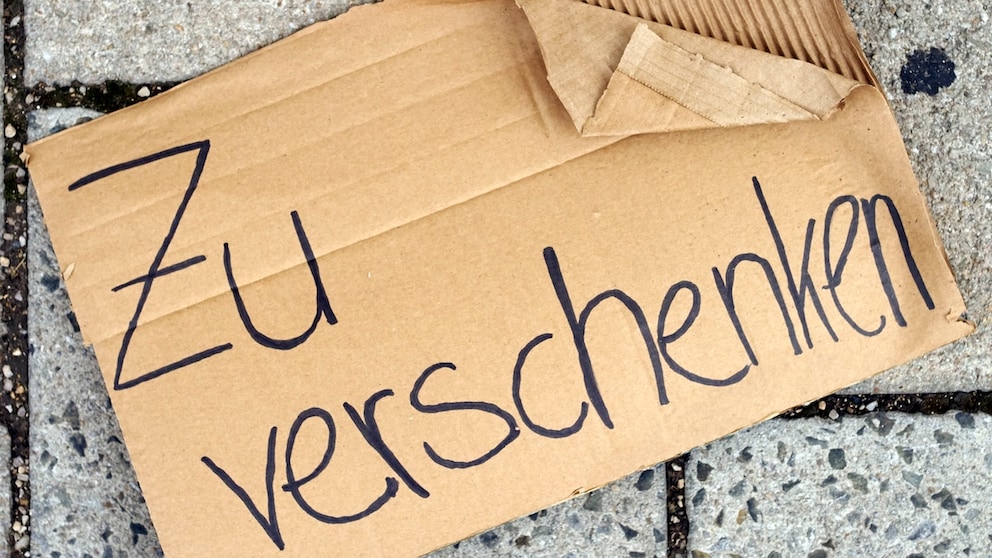 Zu
verschenken